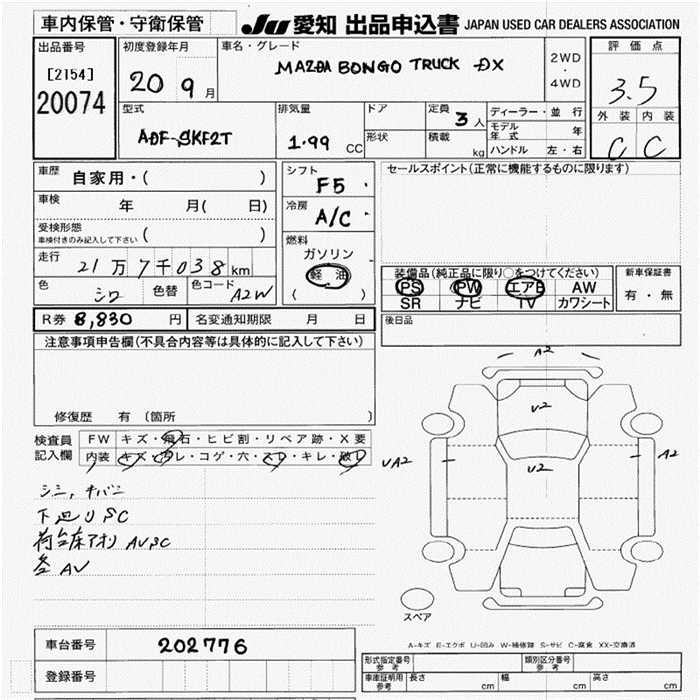 車内保管・守衛保管
JU 愛知 出品申込書 JAPAN USED CAR DEALERS ASSOCIATION
出品番号
[2154]
20074
初度登録年月
20 9 月
車名・グレード
MAZDA BONGO TRUCK DX
2WD
・
4WD
評価点
3.5
外装 内装
C C
型式
ADF-SKF2T
排気量
1.99 CC
ドア
形状
定員
3 人
積載
kg
ディーラー・並行
モデル年式 年
ハンドル 左・右
車歴
自家用・( )
車検
年 月( 日)
受検形態
車検付きのみ記入して下さい ( )
走行
21万7千038 km
色
シロ
色替
色コード
A2W
シフト
F5
冷房
A/C
燃料
ガソリン
軽油
( )
セールスポイント(正常に機能するものに限ります)
装備品(純正品に限り○をつけてください)
PS PW エアB AW
SR ナビ TV カワシート
新車保証書
有・無
R券 8,830 円
名変通知期限 月 日
後日品
注意事項申告欄(不具合内容等は具体的に記入して下さい)
修復歴 有 〔箇所 〕
検査員
記入欄
FW キズ・飛石・ヒビ割・リペア跡・X要
内装 キズ・汚レ・コゲ・穴・スレ・キレ・破レ
下廻りSC
AV
A2
U2
U2
UA2
A2
スペア
A-キズ E-エクボ U-凹み W-補修跡 S-サビ C-腐食 XX-交換済
車台番号
202776
登録番号
形式指定番号
参考
類別区分番号
参考
車庫証明用
参考
長さ cm
幅 cm
高さ cm